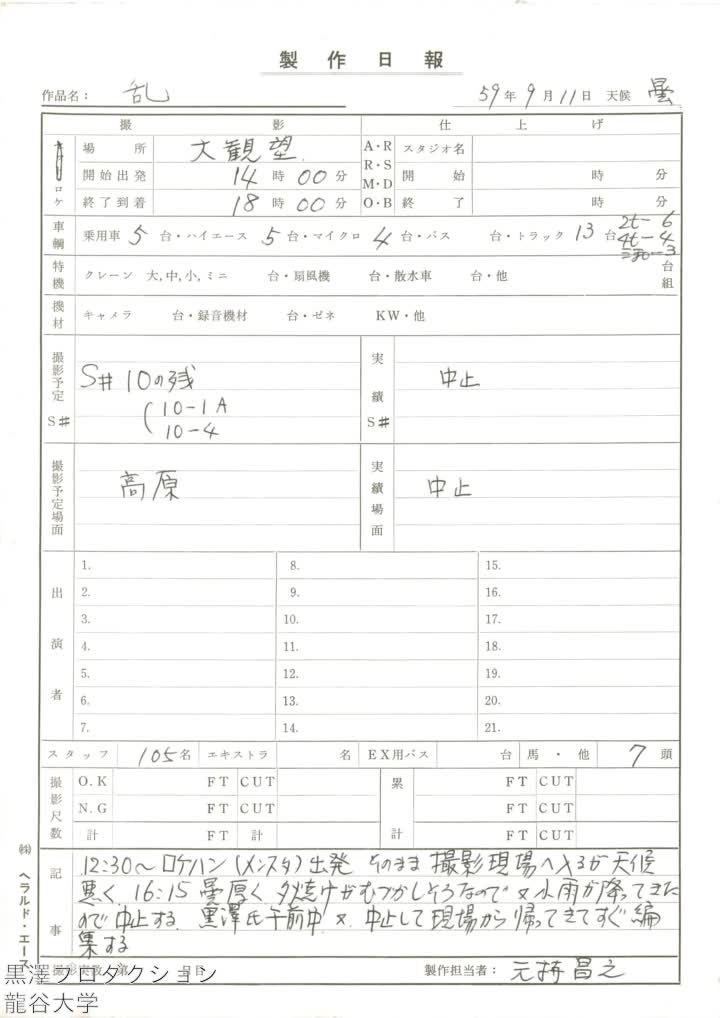 製作日報
作品名： 乱 59年9月11日 天候 曇
撮影 仕上げ
ロケ
場所 大観望 A・R R・S M・D O・B スタジオ名
開始出発 14時00分 開始 時 分
終了到着 18時00分 終了 時 分
車輌 乗用車 5台・ハイエース 5台・マイクロ 4台・バス 台・トラック 13台 2t－6
4t－4
特機 クレーン 大,中,小,ミニ 台・扇風機 台・散水車 台・他 台組
機材 キャメラ 台・録音機材 台・ゼネ KW・他
撮影予定 S# S# 10の残 実績 S# 中止
(10－1A
10－4
撮影予定場面 高原 実績場面 中止
出演者
1. 8. 15.
2. 9. 16.
3. 10. 17.
4. 11. 18.
5. 12. 19.
6. 13. 20.
7. 14. 21.
スタッフ 105名 エキストラ 名 EX用バス 台 馬・他 7頭
撮影尺数 O.K FT CUT 累計 FT CUT
N.G FT CUT FT CUT
計 FT 計 FT CUT
記事
12:30～ロケハン(メンスタ)出発 そのまま撮影現場へ入るが天候
悪く、16:15 曇厚く夕焼けがむづかしそうなので又小雨が降ってきた
ので中止する. 黒澤氏午前中又、中止して現場から帰ってきてすぐ編
集する
製作担当者： 元持昌之
㈱ ヘラルド・エース
黒澤プロダクション
龍谷大学